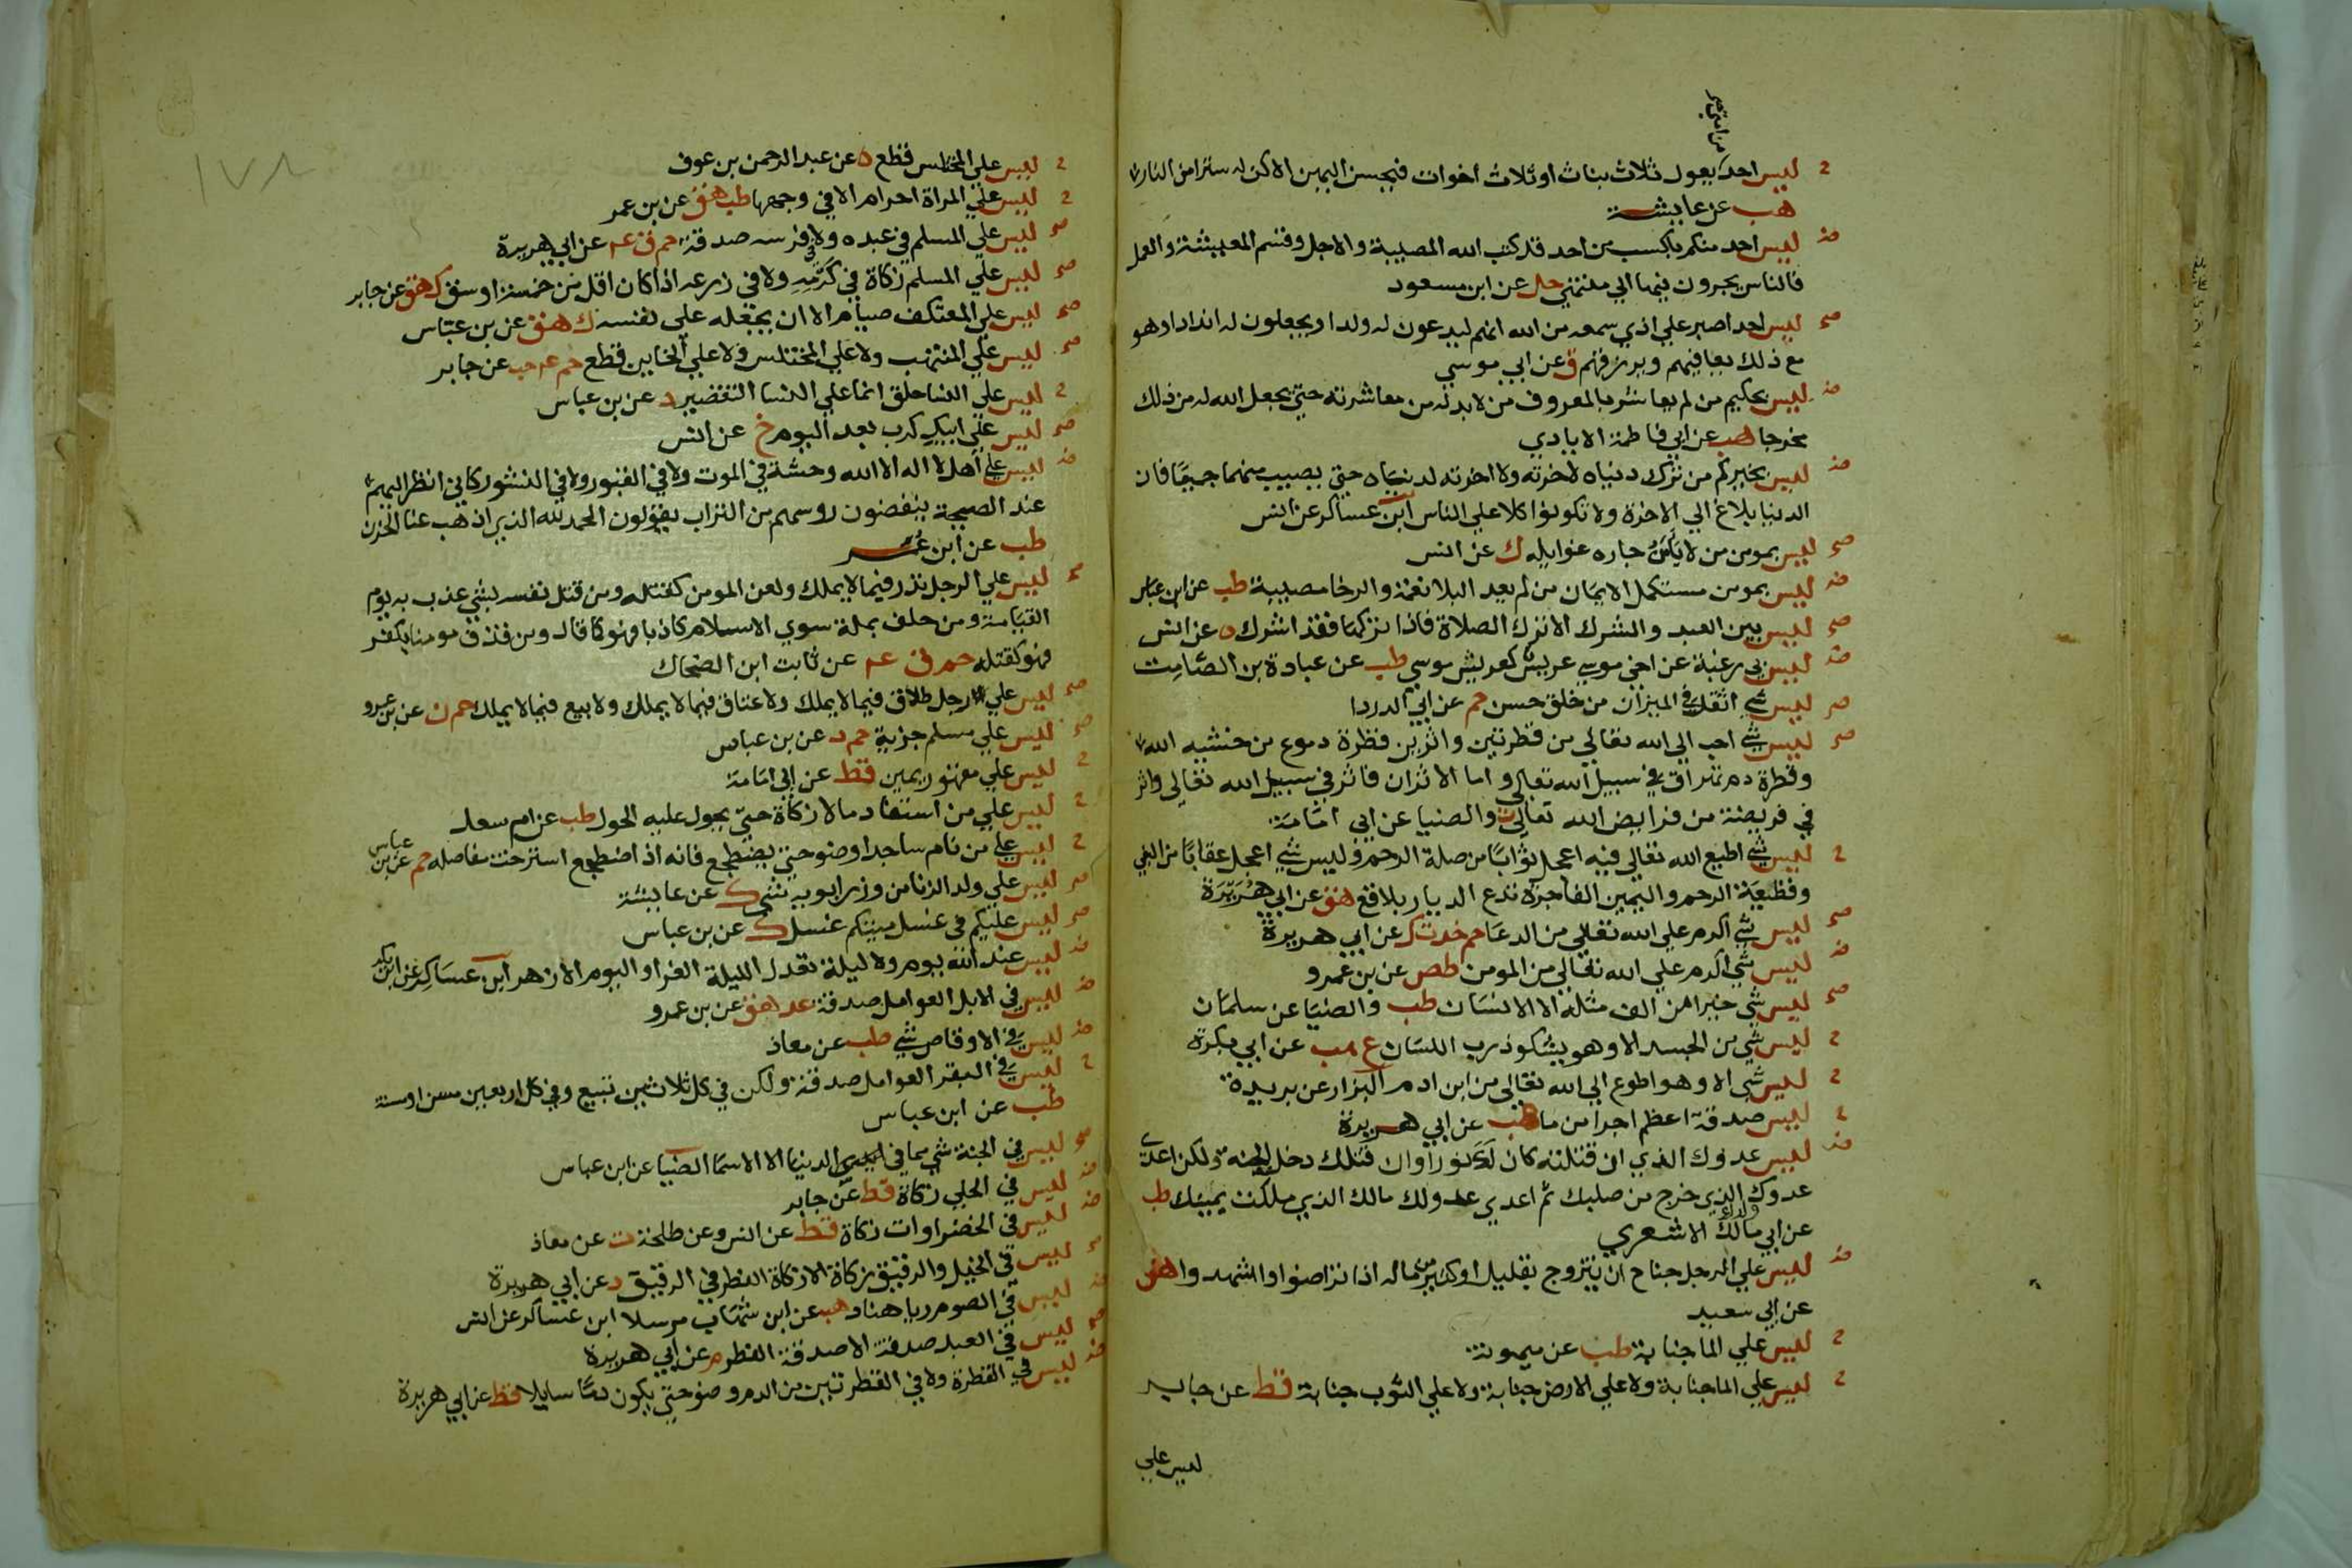 من امتي صح
ح ليس احد يعول ثلاث بنات او ثلاث اخوات فيحسن اليهن الا كن له سترا من النار
هب عن عايشة
ض ليس احد منكم باكسب من احد قد كتب الله المصيبة والاجل وقسم المعيشة والعمل
فالناس يجرون فيها الي منتهي حل عن ابن مسعود
صح ليس احد اصبر علي اذي سمعه من الله انهم ليدعون له ولدا ويجعلون له اندادا وهو
مع ذلك يعافيهم ويرزقهم ق عن ابي موسي
ض ليس بحكيم من لم يعاشر بالمعروف من لا بد له من معاشرته حتي يجعل الله له من ذلك
مخرجا هب عن ابي فاطمة الايادي
ض ليس بخيركم من ترك دنياه لاخرته ولا اخرته لدنياه حتي يصيب منهما جميعا فان
الدنيا بلاغ الي الاخرة ولا تكونوا كلا علي الناس ابن عساكر عن انس
صح ليس بمومن من لا يامن جاره غوايله ك عن انس
ض ليس بمومن مستكمل الايمان من لم يعد البلا نعمة والرخا مصيبة طب عن ابن عباس
صح ليس بين العبد والشرك الا ترك الصلاة فاذا تركها فقد اشرك ه عن انس
ض ليس بي رغبة عن اخي موسي عريش كعريش موسي طب عن عبادة بن الصامت
صح ليس شي اثقل في الميزان من خلق حسن حم عن ابي الدردا
صح ليس شي احب الي الله تعالي من قطرتين واثرين قطرة دموع من خشية الله
وقطرة دم تهراق في سبيل الله تعالي واما الاثران فاثر في سبيل الله تعالي واثر
في فريضة من فرايض الله تعالي ت والضيا عن ابي امامة
ح ليس شي اطيع الله تعالي فيه اعجل ثوابا من صلة الرحم وليس شي اعجل عقابا من البغي
وقطيعة الرحم واليمين الفاجرة تدع الديار بلاقع هق عن ابي هريرة
صح ليس شي اكرم علي الله تعالي من الدعا حم خد ت ك عن ابي هريرة
ض ليس شي اكرم علي الله تعالي من المومن طص عن بن عمرو
صح ليس شي خيرا من الف مثله الا الانسان طب والضيا عن سلمان
ح ليس شي من الجسد الا وهو يشكو ذرب اللسان ع هب عن ابي بكرة
ح ليس شي الا وهو اطوع الي الله تعالي من ابن ادم البزار عن بريدة
ح ليس صدقة اعظم اجرا من ما هب عن ابي هريرة
ض ليس عدوك الذي ان قتلته كان لك نورا وان قتلك دخلت الجنة ولكن اعدي
عدوك ولدك الذي خرج من صلبك ثم اعدي عدو لك مالك الذي ملكت يمينك طب
عن ابي مالك الاشعري
ض ليس علي الرجل جناح ان يتزوج بقليل او كثير من ماله اذا تراضوا واشهدوا هق
عن ابي سعيد
ح ليس علي الما جنابة طب عن ميمونة
ح ليس علي الما جنابة ولا علي الارض جنابة ولا علي الثوب جنابة قط عن جابر
ليس علي
١٧٨
ح ليس علي المختلس قطع ه عن عبد الرحمن بن عوف
ح ليس علي المراة احرام الا في وجهها طب هق عن بن عمر
صح ليس علي المسلم في عبده ولا في فرسه صدقة حم ق عه عن ابي هريرة
صح ليس علي المسلم زكاة في كرمه ولا في زرعه اذا كان اقل من خمسة اوسق ك هق عن جابر
صح ليس علي المعتكف صيام الا ان يجعله علي نفسه ك هق عن بن عباس
صح ليس علي المنتهب ولا علي المختلس ولا علي الخاين قطع حم عه حب عن جابر
ح ليس علي النسا حلق انما علي النسا التقصير د عن بن عباس
صح ليس علي ابيك كرب بعد اليوم خ عن انس
ض ليس علي اهل لا اله الا الله وحشة في الموت ولا في القبور ولا في النشور كاني انظر اليهم
عند الصيحة ينفضون روسهم من التراب يقولون الحمد لله الذي اذهب عنا الحزن
طب عن ابن عمر
صح ليس علي الرجل نذر فيما لا يملك ولعن المومن كقتله ومن قتل نفسه بشي عذب به يوم
القيامة ومن حلف بملة سوي الاسلام كاذبا فهو كما قال ومن قذف مومنا بكفر
فهو كقتله حم ق عه عن ثابت ابن الضحاك
صح ليس علي رجل طلاق فيما لا يملك ولا عتاق فيما لا يملك ولا بيع فيما لا يملك حم ن عن بن عمرو
صح ليس علي مسلم جزية حم د عن بن عباس
ح ليس علي مقهور يمين قط عن ابي امامة
ح ليس علي من استفاد مالا زكاة حتي يحول عليه الحول طب عن ام سعد
ح ليس علي من نام ساجدا وضو حتي يضطجع فانه اذا اضطجع استرخت مفاصله حم عن بن عباس
صح ليس علي ولد الزنا من وزر ابويه شي ك عن عايشة
صح ليس عليكم في غسل ميتكم غسل ك عن بن عباس
ض ليس عند الله يوم ولا ليلة تعدل الليلة الغرا واليوم الازهر ابن عساكر عن ابي بكر
ض ليس في الابل العوامل صدقة عد هق عن بن عمرو
ض ليس في الاوقاص شي طب عن معاذ
ح ليس في البقر العوامل صدقة ولكن في كل ثلاثين تبيع وفي كل اربعين مسن او مسنة
طب عن ابن عباس
صح ليس في الجنة شي مما في الدنيا الا الاسما الضيا عن ابن عباس
ض ليس في الحلي زكاة قط عن جابر
ض ليس في الخضراوات زكاة قط عن انس وعن طلحة ت عن معاذ
صح ليس في الخيل والرقيق زكاة الا زكاة الفطر في الرقيق د عن ابي هريرة
ض ليس في الصوم ريا هناد هب عن ابن شهاب مرسلا ابن عساكر عن انس
صح ليس في العبد صدقة الا صدقة الفطر م عن ابي هريرة
ض ليس في القطرة ولا في القطرتين من الدم وضو حتي يكون دما سايلا قط عن ابي هريرة